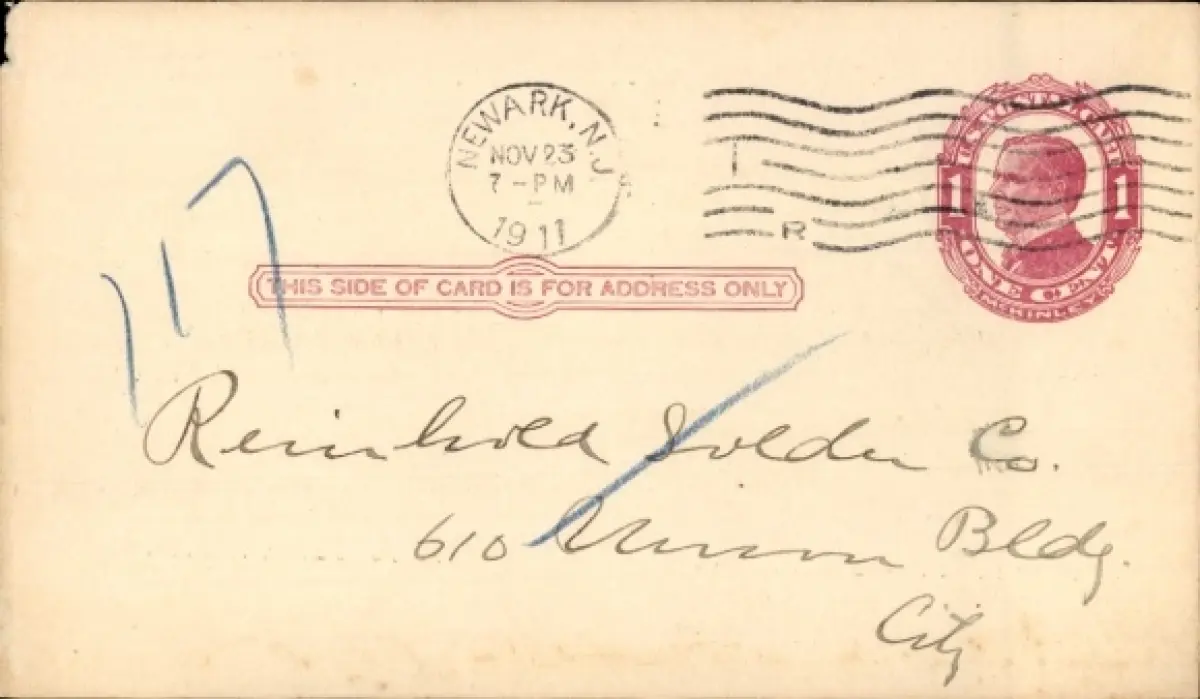 NEWARK, N.J.
NOV 23
7-PM
1911
R
U.S. POSTAL CARD
1 1
ONE CENT
McKINLEY
THIS SIDE OF CARD IS FOR ADDRESS ONLY
117
Reinhold Solder Co.
610 Union Bldg.
City